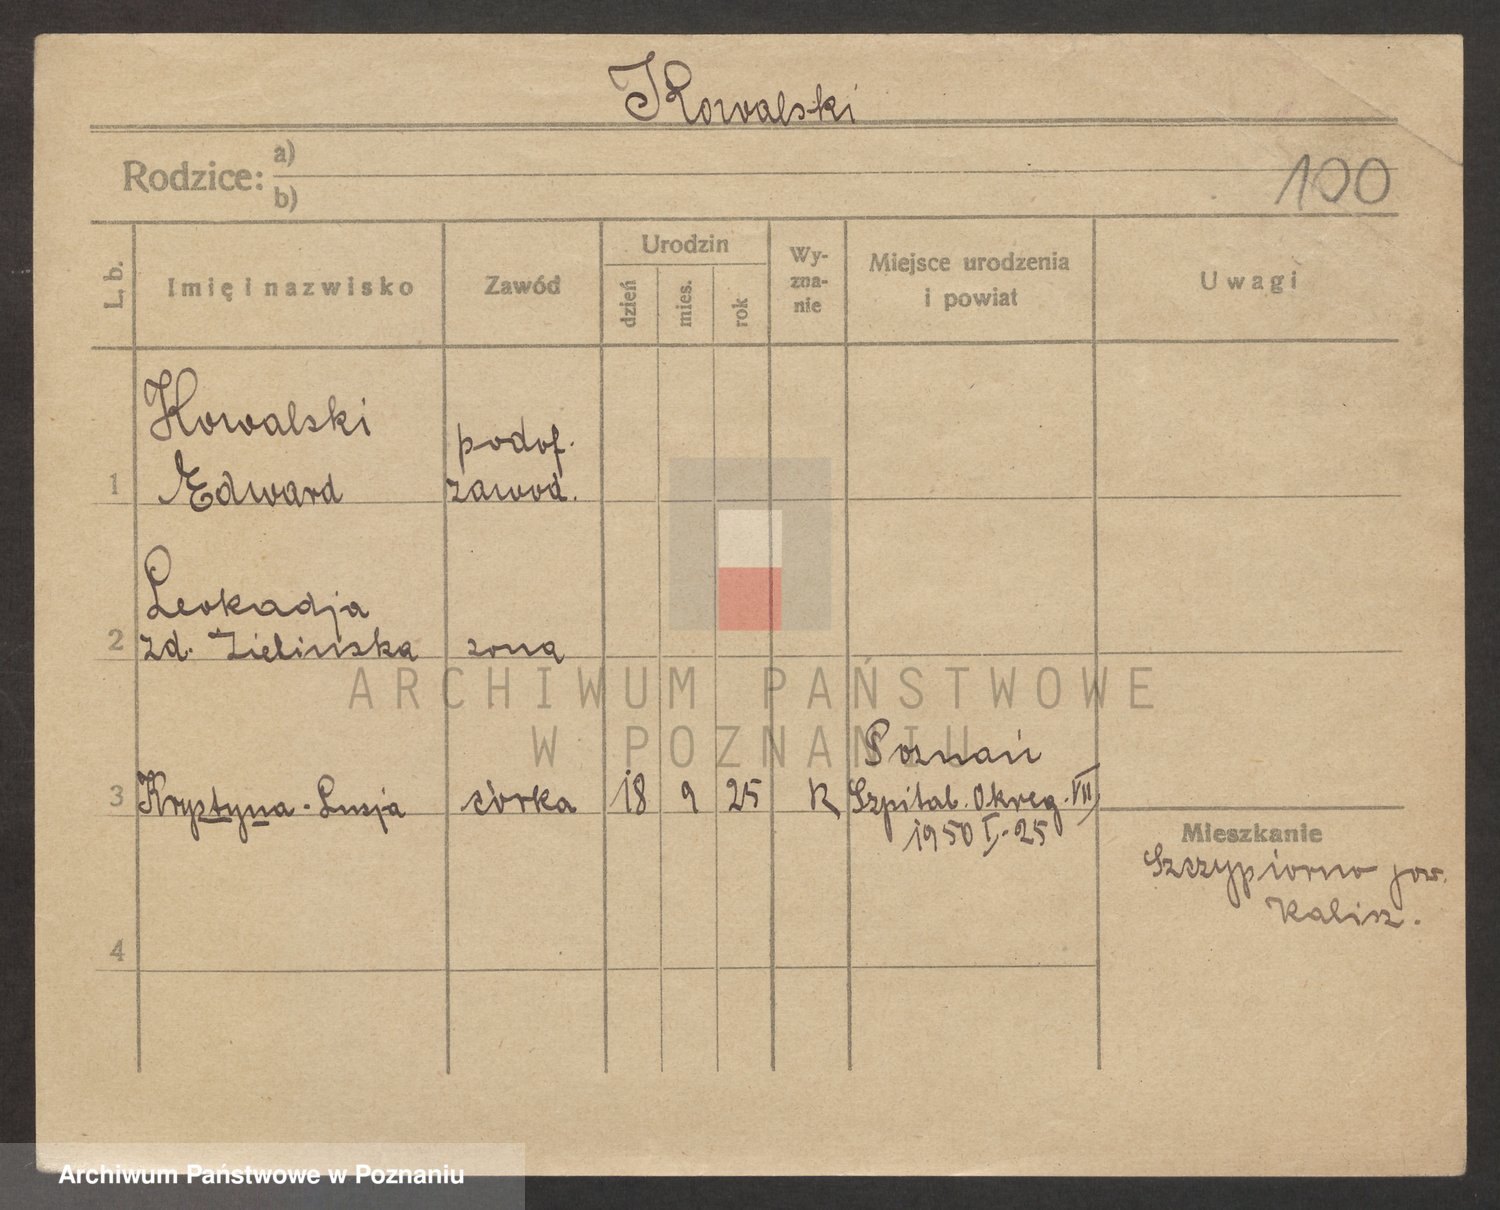 Kowalski
Rodzice: a)
b)
100
L. b.
Imię i nazwisko
Zawód
Urodzin
dzień
mies.
rok
Wy-
zna-
nie
Miejsce urodzenia
i powiat
Uwagi
1
Kowalski
Edward
podof.
zawod.
2
Leokadja
zd. Zielinska
żona
3
Krystyna - Lucja
córka
18
9
25
R
Poznań
Szpital. Okręg. VII
1950 I - 25
Mieszkanie
Szczypiorno pow.
Kalisz.
4
ARCHIWUM PAŃSTWOWE
W POZNANIU
Archiwum Państwowe w Poznaniu